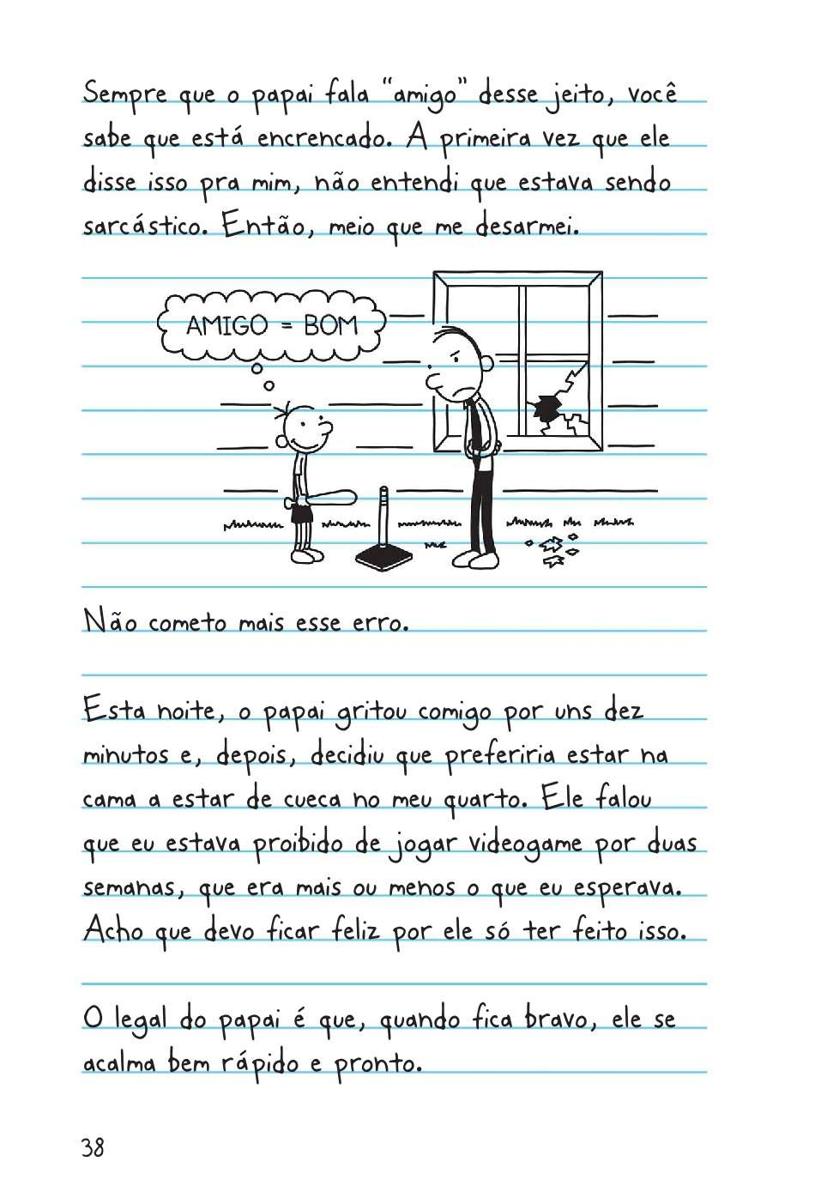 Sempre que o papai fala “amigo” desse jeito, você
sabe que está encrencado. A primeira vez que ele
disse isso pra mim, não entendi que estava sendo
sarcástico. Então, meio que me desarmei.
AMIGO = BOM
Não cometo mais esse erro.
Esta noite, o papai gritou comigo por uns dez
minutos e, depois, decidiu que preferiria estar na
cama a estar de cueca no meu quarto. Ele falou
que eu estava proibido de jogar videogame por duas
semanas, que era mais ou menos o que eu esperava.
Acho que devo ficar feliz por ele só ter feito isso.
O legal do papai é que, quando fica bravo, ele se
acalma bem rápido e pronto.
38